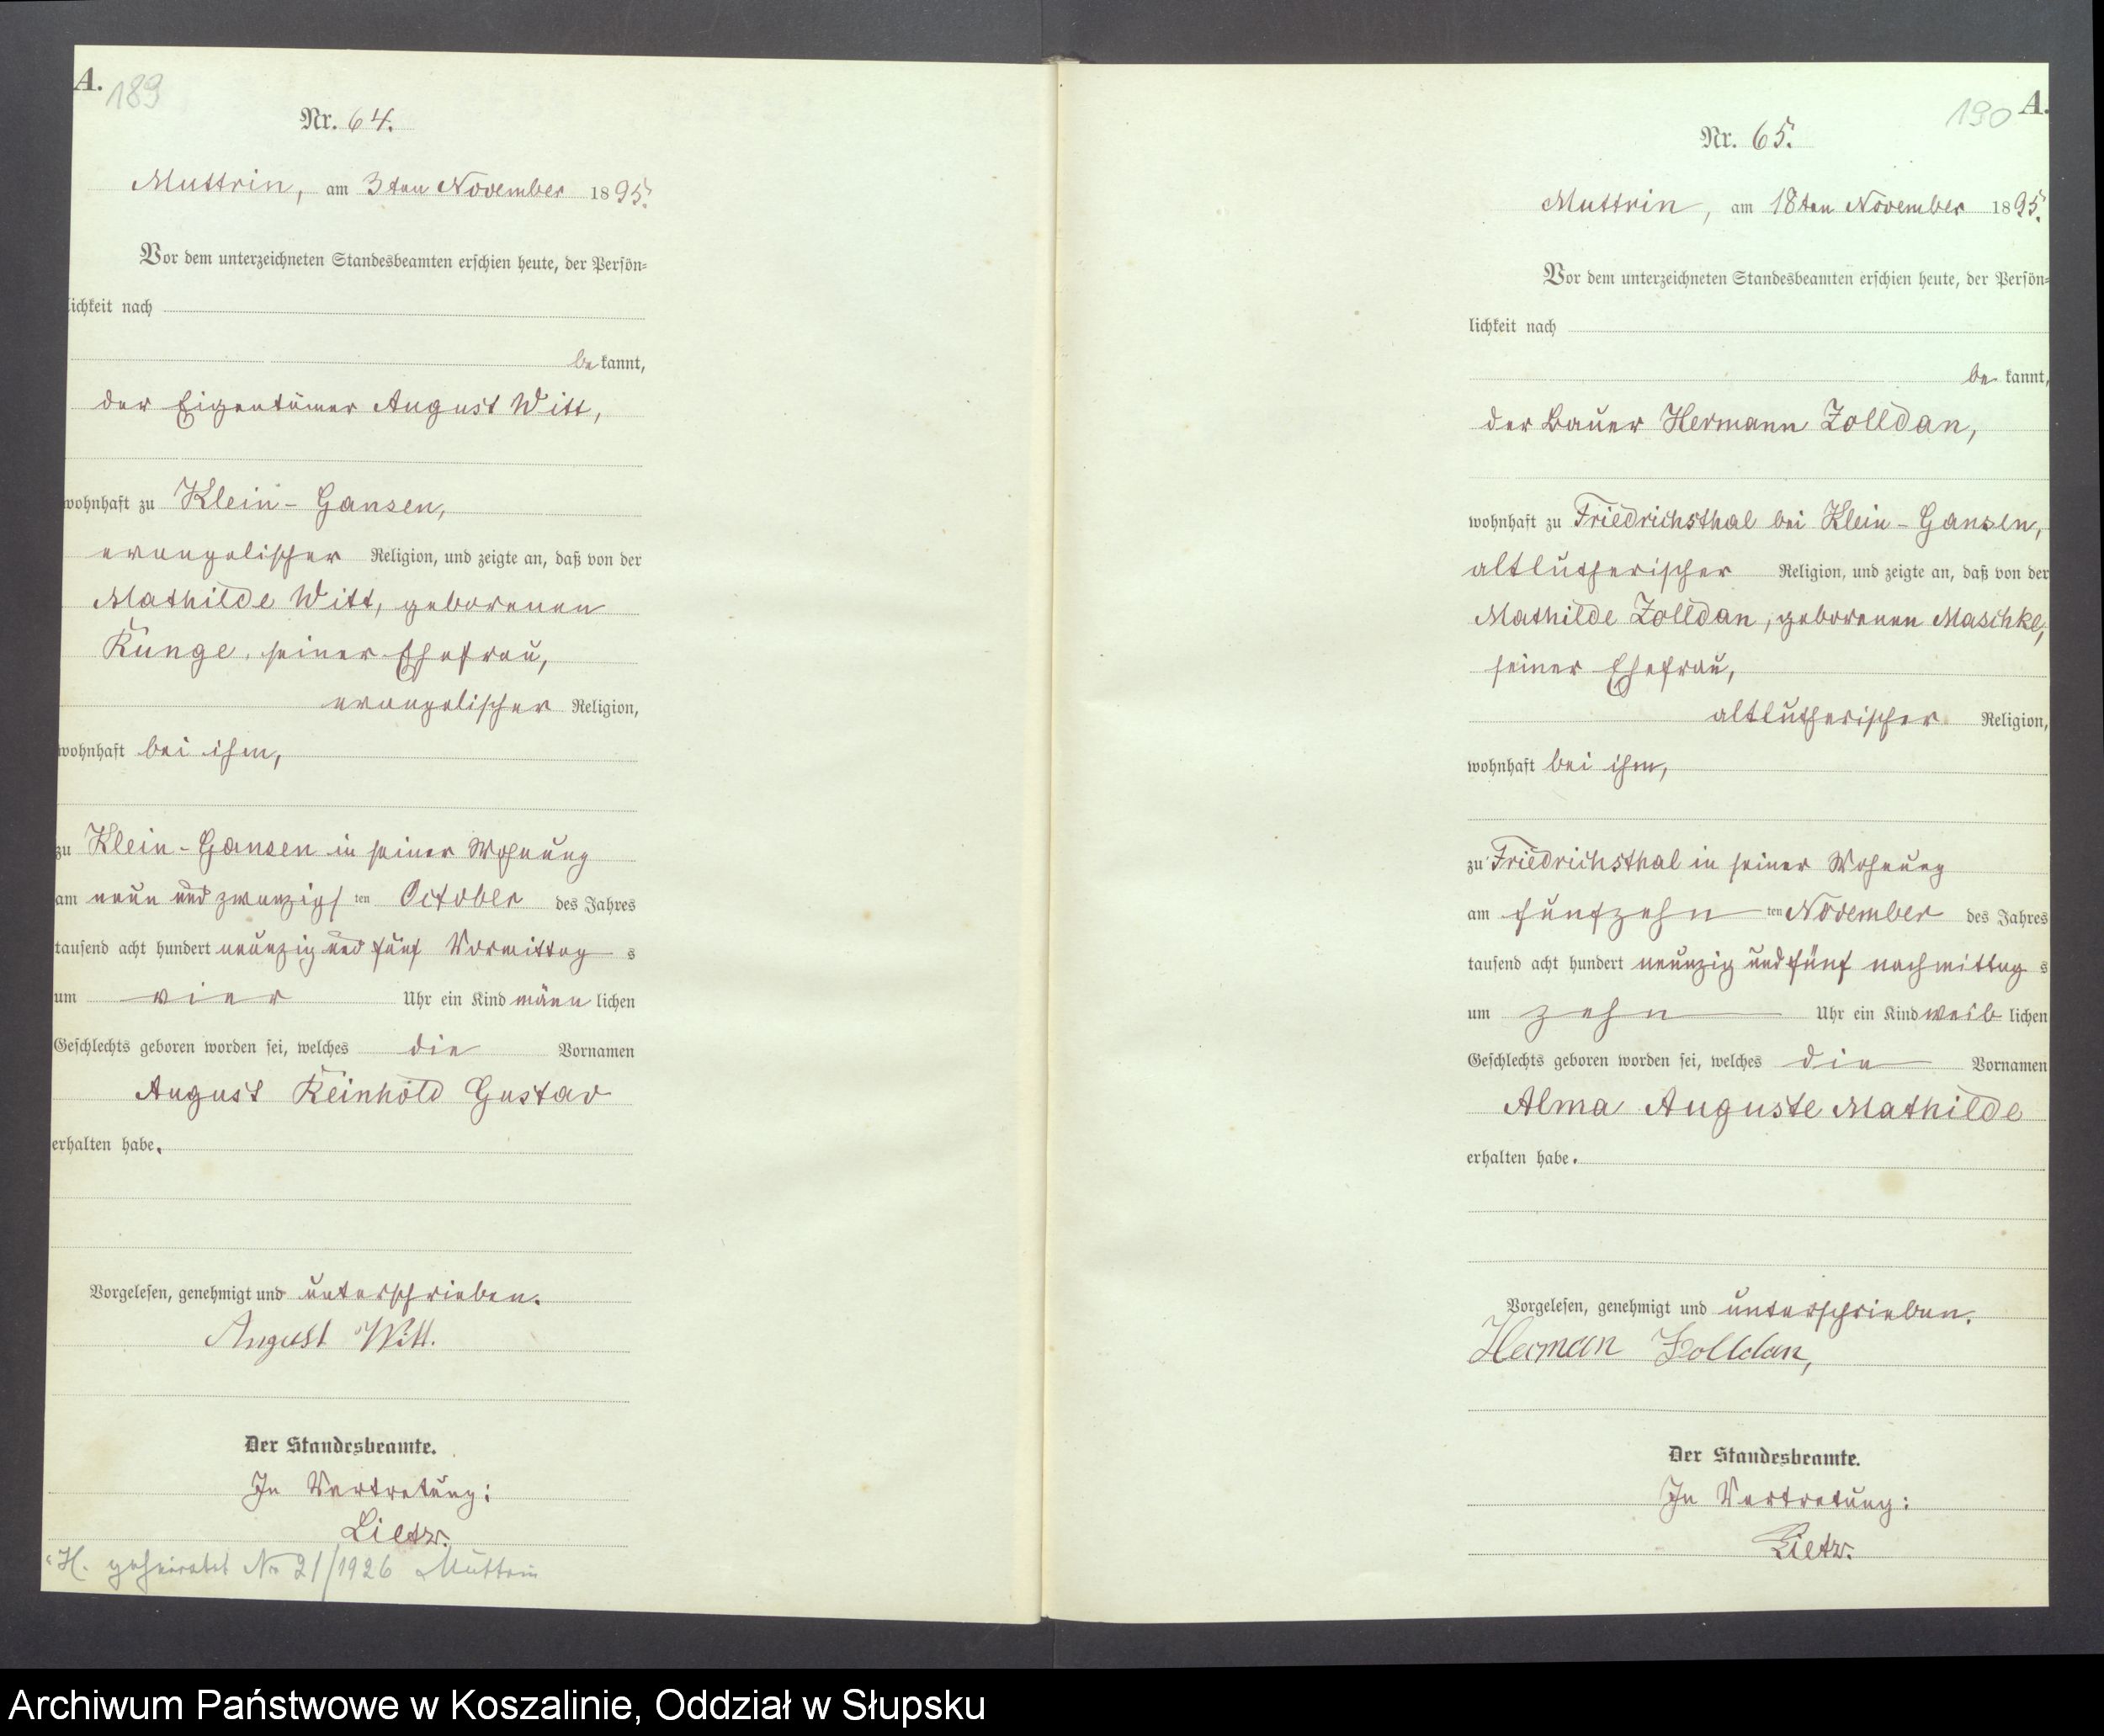 A. 189
Nr. 64.
Muttrin, am 3ten November 1895.
Vor dem unterzeichneten Standesbeamten erschien heute, der Persön=
lichkeit nach
be kannt,
der Eigentümer August Witt,
wohnhaft zu Klein-Gansen,
evangelischer Religion, und zeigte an, daß von der
Mathilde Witt, geborenen
Runge, seiner Ehefrau,
evangelischer Religion,
wohnhaft bei ihm,
zu Klein-Gansen in seiner Wohnung
am neun und zwanzigs ten October des Jahres
tausend acht hundert neunzig und fünf Vormittag s
um vier Uhr ein Kind männ lichen
Geschlechts geboren worden sei, welches die Vornamen
August Reinhold Gustav
erhalten habe.
Vorgelesen, genehmigt und unterschrieben.
August Witt.
Der Standesbeamte.
In Vertretung:
Lietz.
H. geheiratet No 21/1926 Muttrin
190 A.
Nr. 65.
Muttrin, am 18ten November 1895.
Vor dem unterzeichneten Standesbeamten erschien heute, der Persön=
lichkeit nach
be kannt,
der Bauer Hermann Zolldan,
wohnhaft zu Friedrichsthal bei Klein-Gansen,
altlutherischer Religion, und zeigte an, daß von der
Mathilde Zolldan, geborenen Maschke,
seiner Ehefrau,
altlutherischer Religion,
wohnhaft bei ihm,
zu Friedrichsthal in seiner Wohnung
am fünfzehn ten November des Jahres
tausend acht hundert neunzig und fünf nachmittag s
um zehn Uhr ein Kind weib lichen
Geschlechts geboren worden sei, welches die Vornamen
Alma Auguste Mathilde
erhalten habe.
Vorgelesen, genehmigt und unterschrieben.
Herman Zolldan,
Der Standesbeamte.
In Vertretung:
Lietz.
Archiwum Państwowe w Koszalinie, Oddział w Słupsku